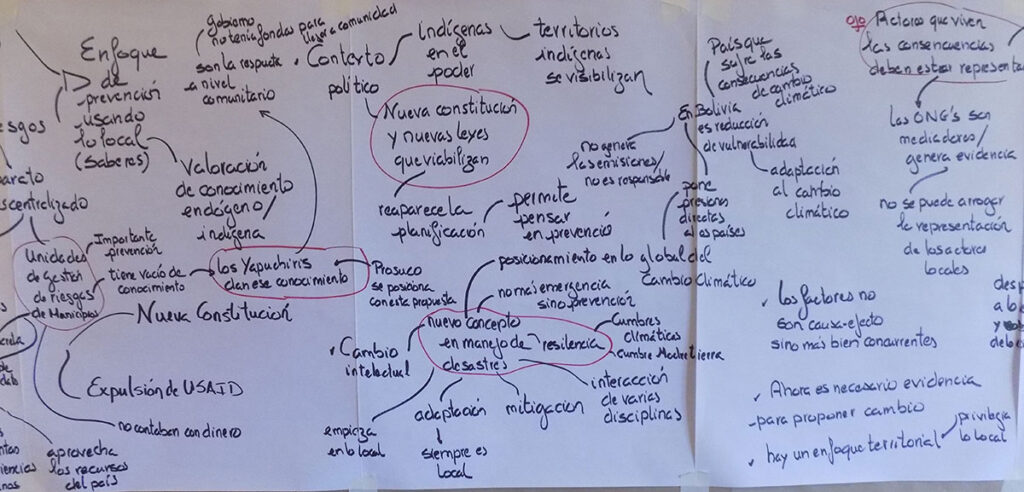 Enfoque
de
prevención
usando
lo local
(saberes)
esgos
arato
scentralizado
Unidades
de gestión
de riezgos
de Municipios
Importante
prevención
tiene vacío de
conocimiento
Valoración
de conocimiento
endógeno/
indígena
los Yapuchiris
dan ese conocimiento
Prosuco
se posiciona
con esta propuesta
Nueva Constitución
Expulsión de USAID
no contaban con dinero
aprovecha
los recursos
del país
gobierno
no tenía fondos para
llegar a comunidad
son la respuesta
a nivel
comunitario
Contexto
político
Indígenas
en el
poder
territorios
indígenas
se visibilizan
Nueva constitución
y nuevas leyes
que viabilizan
reaparece la
planificación
permite
pensar
en prevenció
posicionamiento en lo global del
Cambio Climático
no más emergencia
sino prevención
nuevo concepto
en manejo de
desastres
resilencia
Cumbres
climáticas
Cumbre Madre tierra
Cambio
intelectual
empieza
en lo local
adaptación
siempre es
local
mitigacion
interacción
de varias
disciplinas
País que
sufre las
consecuencias
de cambio
climático
En Bolivia
es reducción
de vulnerabilidad
no genera
las emisiones/
no es responsable
adaptación
al cambio
climático
pone
presiones
directas
a los países
Actores que viven
las consencuencias
deben estar representa
las ONG's son
mediadores/
genera evidencia
no se puede arrogar
la representación
de los actores
locales
los factores no
son causa-efecto
sino más bien concurrentes
desp
a lo
y
debe
Ahora es necesario evidencia
para proponer cambio
hay un enfoque territorial
privilegia
lo local